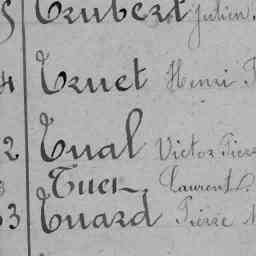 Trubert Julien
4 Truet Henri
2 Tual Victor Pierre
Tuer Laurent
3 Tuard Pierre